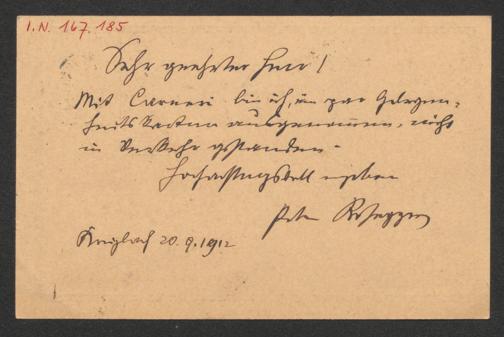 I.N. 167.185
Sehr geehrter Herr!
Mit Carneri bin ich, ein paar Gelegen-
heitskarten ausgenommen, nicht
in Verkehr gestanden.
Hochachtungsvoll ergeben
Peter Rosegger
Krieglach 20.9.1912